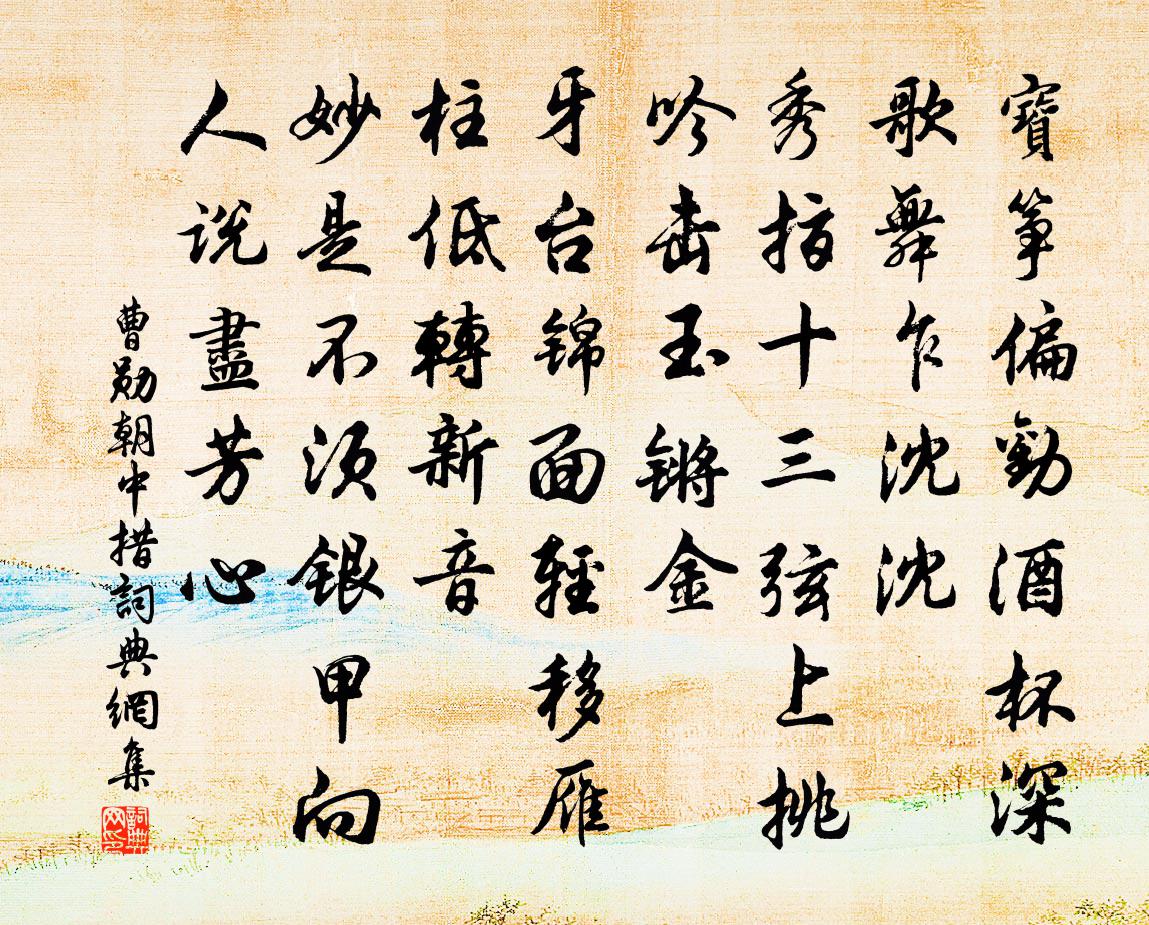 寶箏偏勸酒杯深
歌舞乍沈沈
秀指十三弦上挑
吟击玉锵金
牙台锦面輕移雁
柱低轉新音
妙是不须銀甲向
人说盡芳心
曹勋朝中措詞典網集
詞典网印